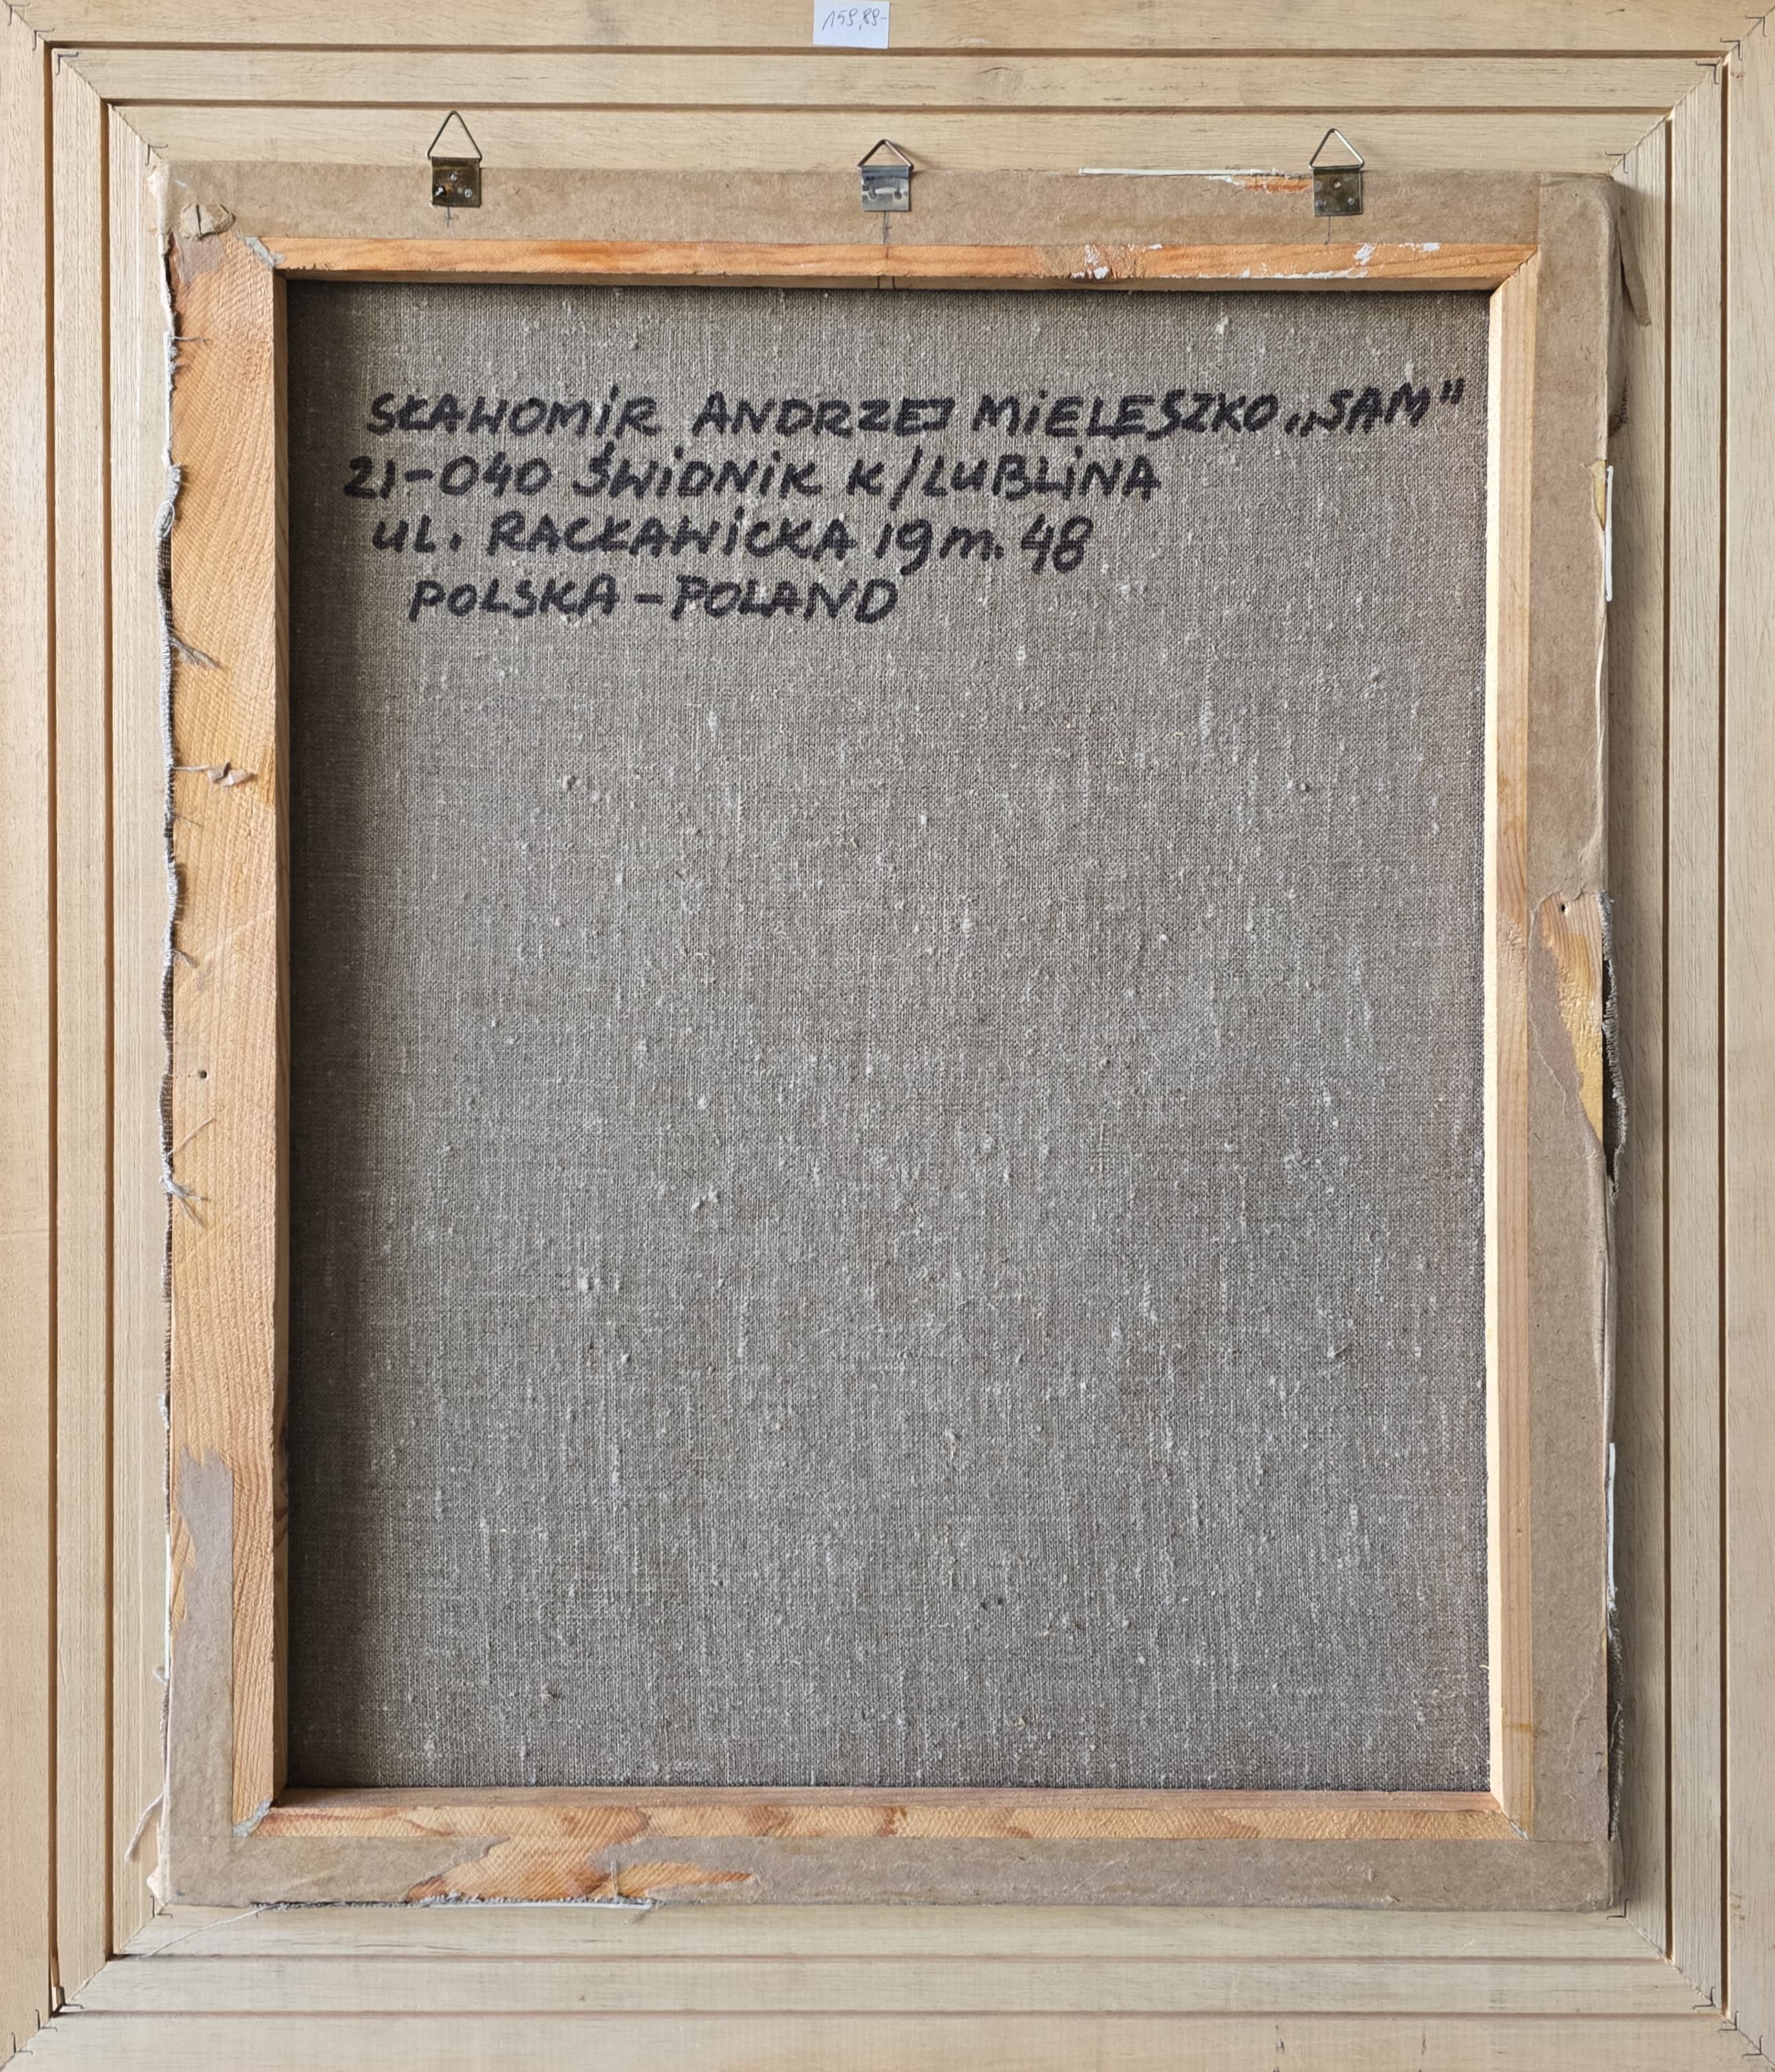 159,89-
SŁAWOMiR ANDRZEJ MiELESZKO „SAM"
21-040 ŚWiDNiK K/LUBLiNA
UL. RACŁAWiCKA 19 m. 48
POLSKA - POLAND